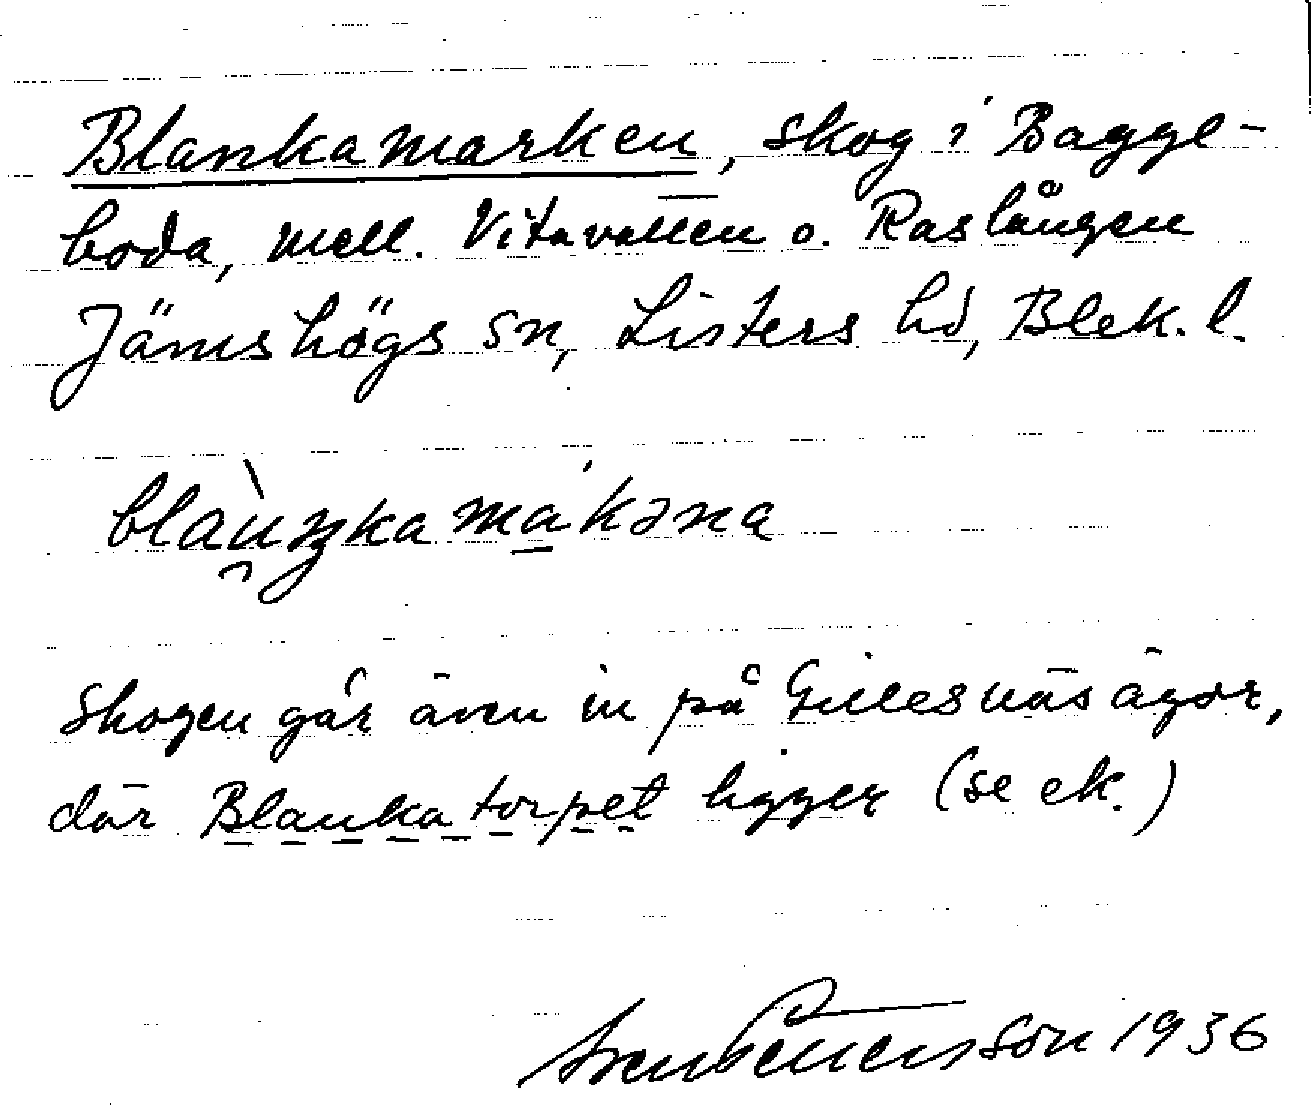 Blankamarken, skog i Bagge-
boda, mell. Vitavallen o. Raslången
Jämshögs sn, Listers hd, Blek. l.
blàu̯ŋkamákəna
Skogen går även in på Gillesnäs ägor,
där Blankatorpet ligger (se ek.)
Sven Benson 1936